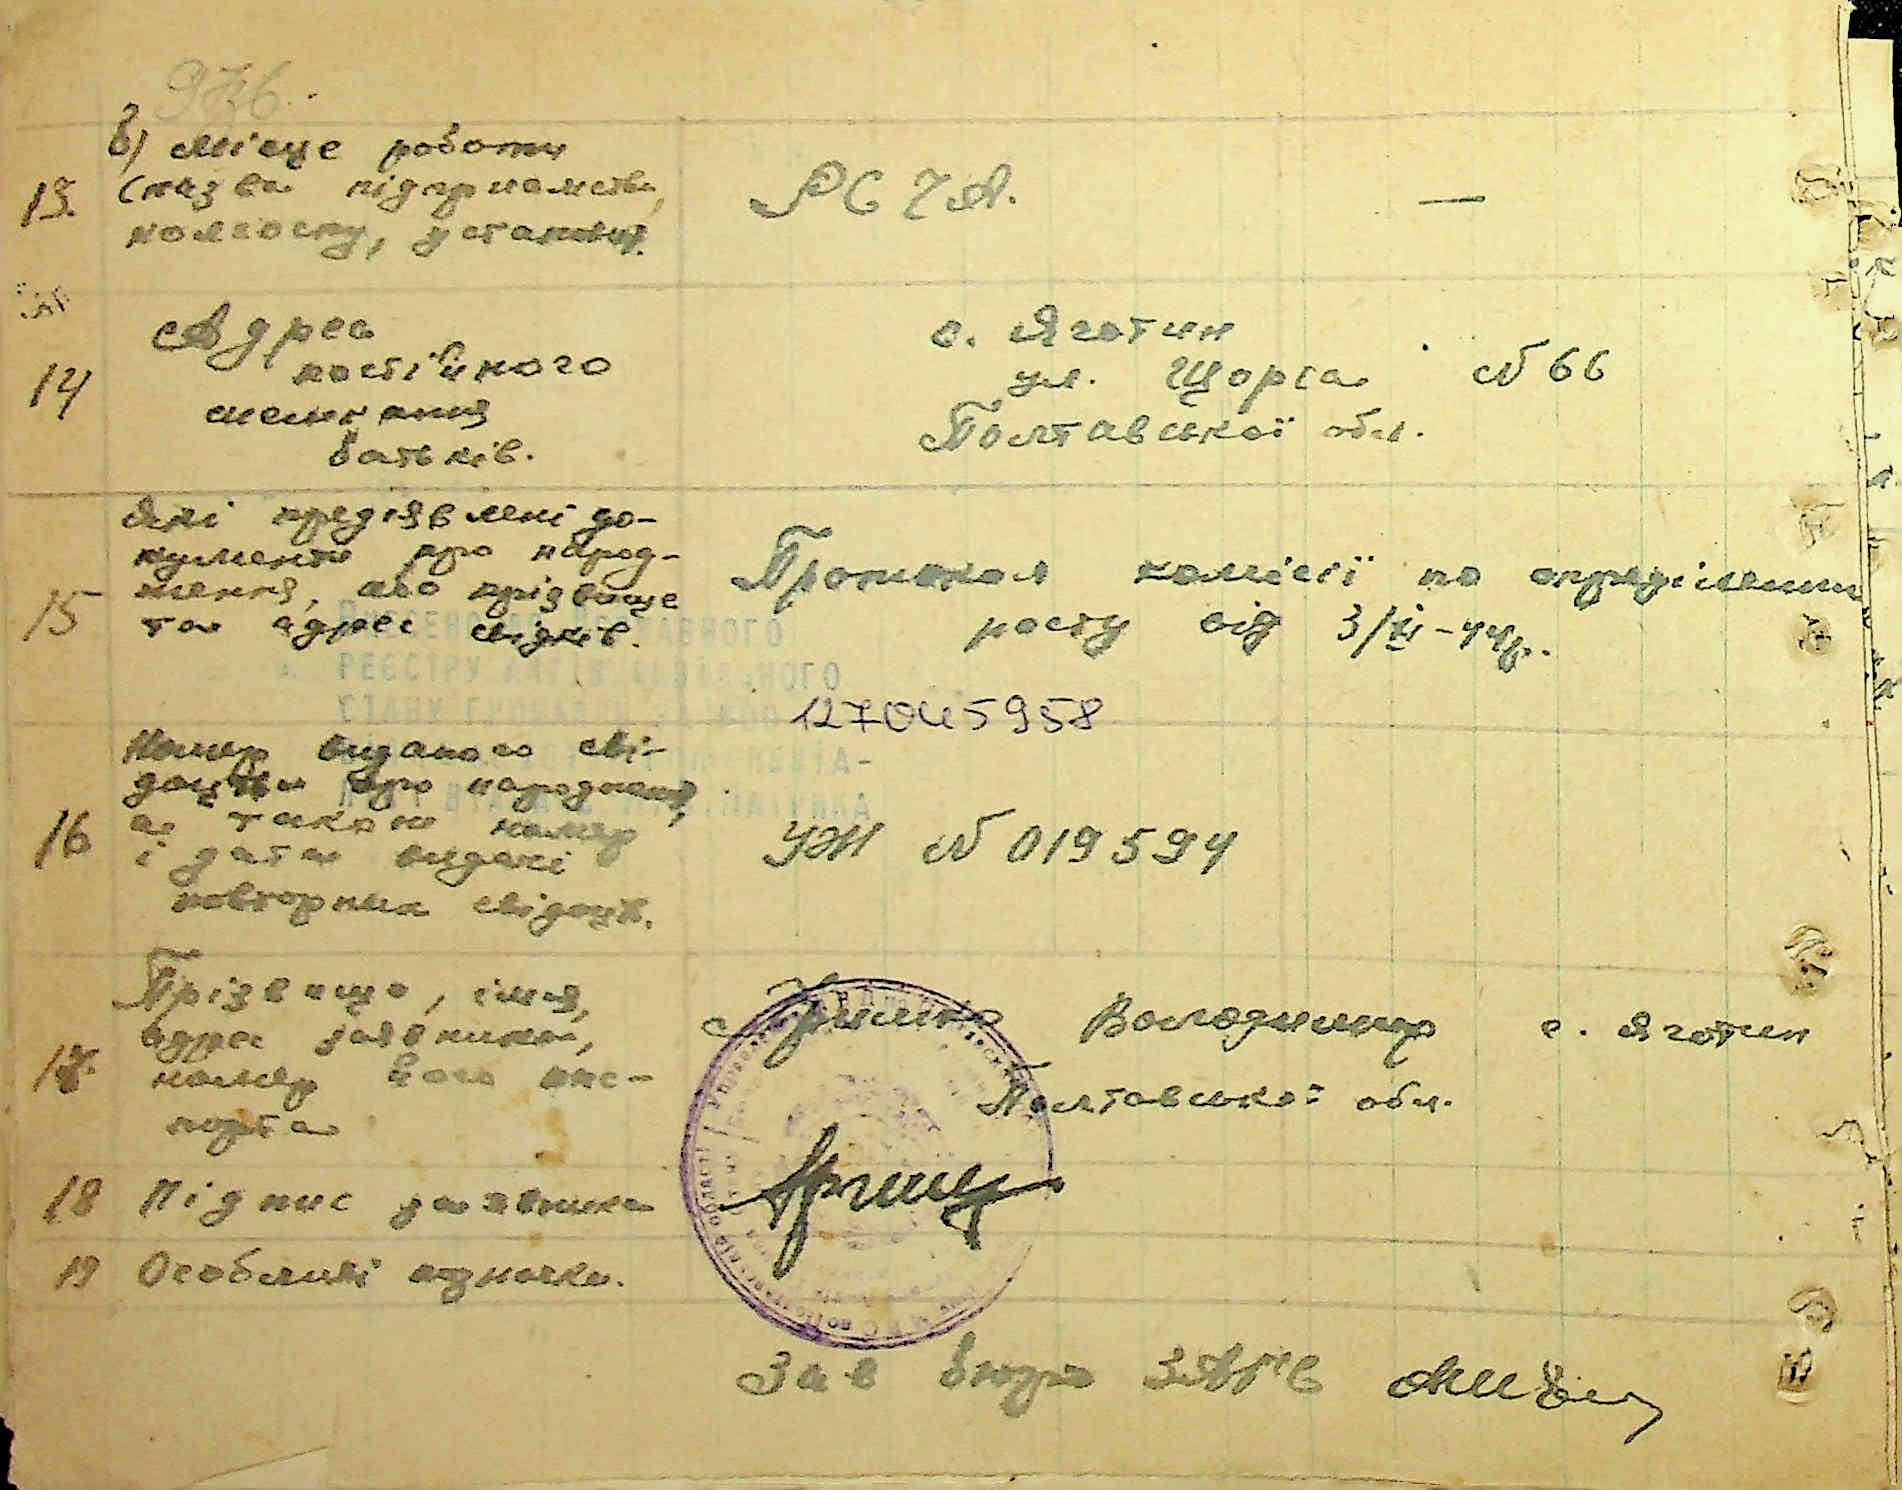 976.
в) місце роботи
13. (назва підприємства,
колгоспу, установи).
РСЧА. —
14
Адрес
постійного
мешкання
батьків.
с. Яготин
ул. Щорса № 66
Полтавської обл.
15
Які предіявлені до-
кументи про народ-
ження, або прізвище
та адрес свідків.
Протокол комісії по опреділенню
росту від 3/III-44р.
РЕЄСТРУ АКТІВ ЦИВІЛЬНОГО
1270445958
16
Номер виданого сві-
доцтва про народження,
а також номер
і дата видачі
повторних свідоцтв.
УЖ № 019594
17.
Прізвище, імя,
адрес заявника,
номер його пас-
порта
Володимир с. Яготин
Полтавської обл.
18 Підпис заявника
19 Особливі одмочки.
Зав бюро ЗАГС'ів